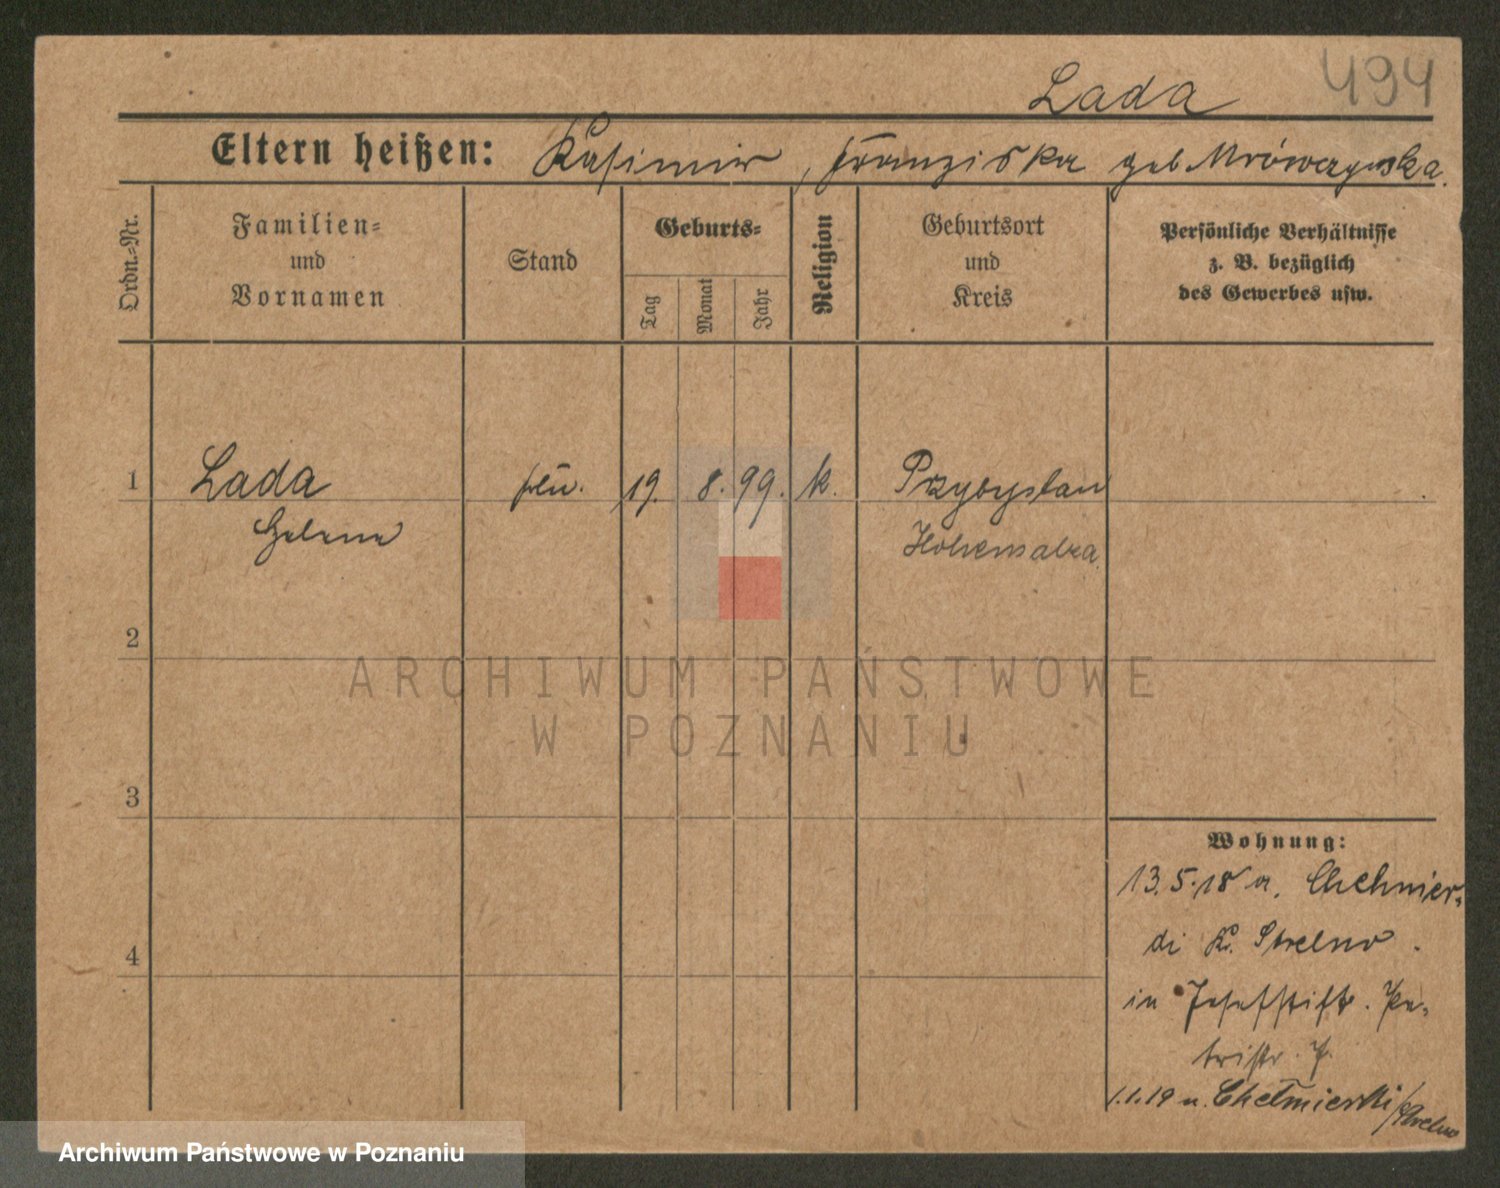 494
Lada
Eltern heißen: Kasimir, Franziska geb. Mrówczynska.
Ordn.-Nr.
Familien-
und
Vornamen
Stand
Geburts-
Tag
Monat
Jahr
Religion
Geburtsort
und
Kreis
Persönliche Verhältnisse
z. B. bezüglich
des Gewerbes usw.
1 Lada 19. 8. 99. k. Przybyslaw
Helene Hohensalza
2
3
4
Wohnung:
13.5.18 a. Chelmier-
di K. Strelno.
in Josefstift. Pe-
tristr. 7.
1.1.19 n. Chełmierski/Strelno
ARCHIWUM PAŃSTWOWE
W POZNANIU
Archiwum Państwowe w Poznaniu